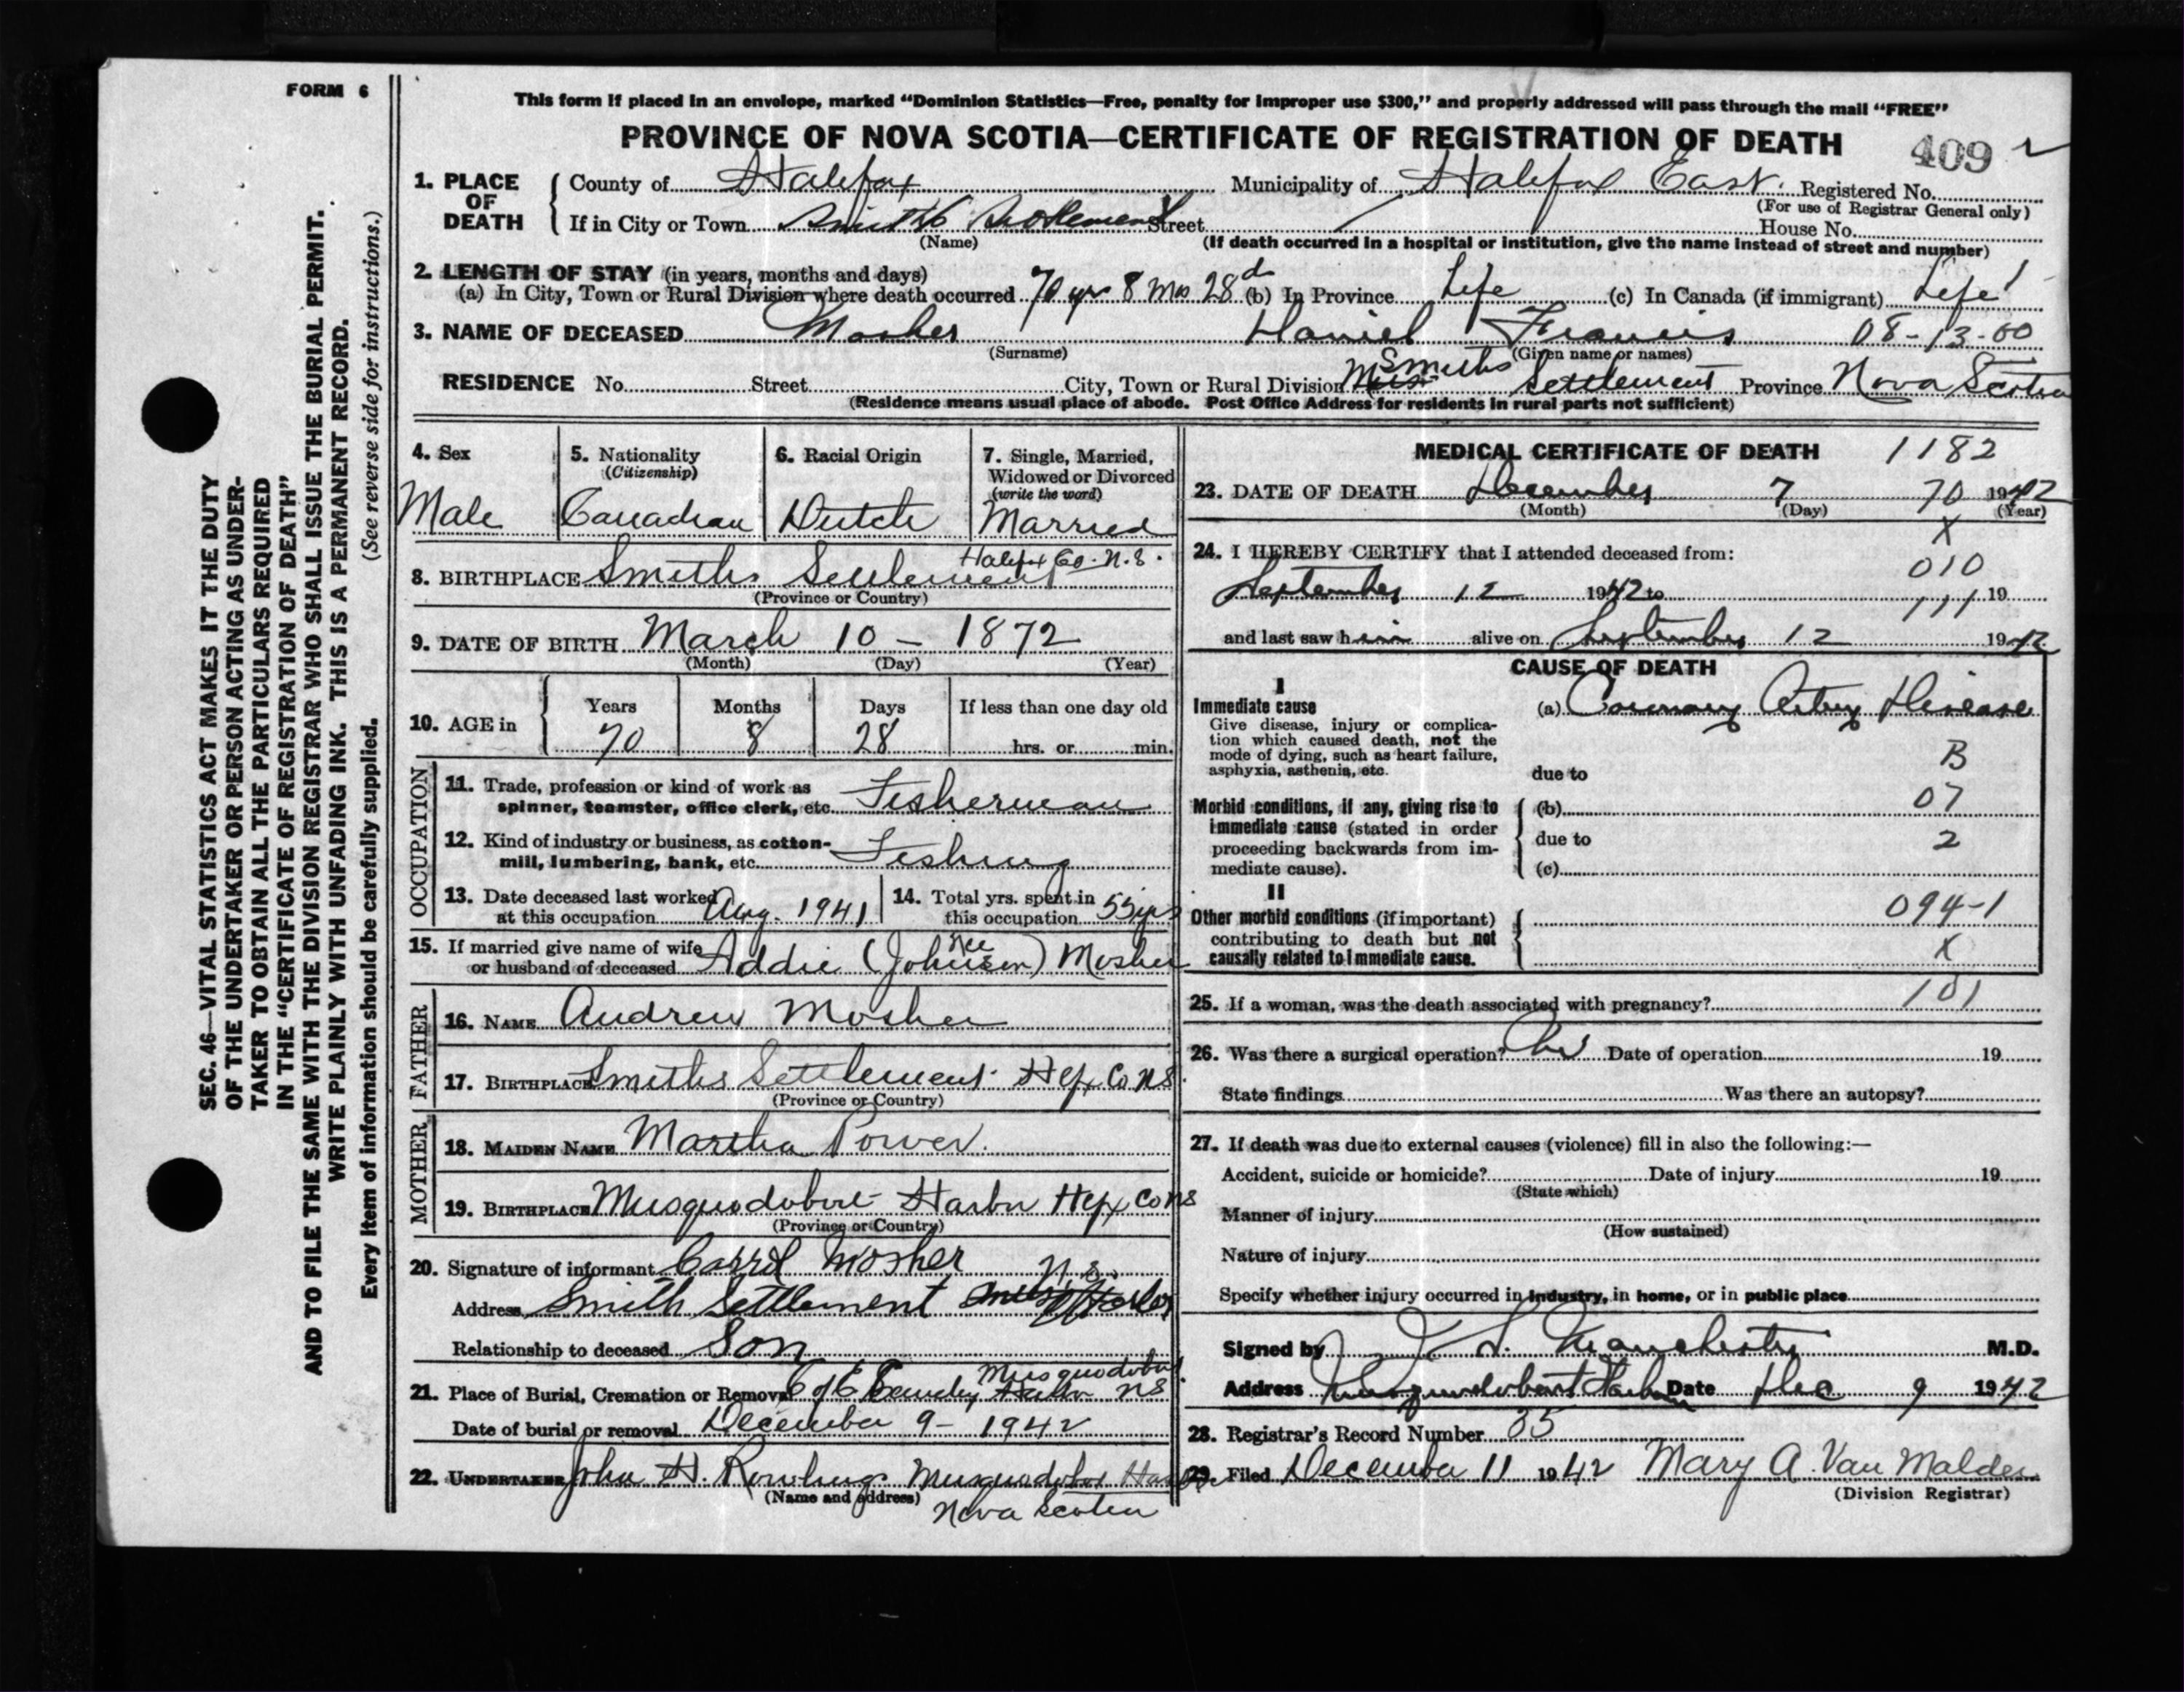 FORM 6
This form if placed in an envelope, marked “Dominion Statistics—Free, penalty for improper use $300,” and properly addressed will pass through the mail “FREE”
PROVINCE OF NOVA SCOTIA—CERTIFICATE OF REGISTRATION OF DEATH 409
1. PLACE OF DEATH County of Halifax Municipality of Halifax East. Registered No.
(For use of Registrar General only)
If in City or Town Smith Settlement Street House No.
(Name) (If death occurred in a hospital or institution, give the name instead of street and number)
2. LENGTH OF STAY (in years, months and days)
(a) In City, Town or Rural Division where death occurred 70 yrs 8 Mos 28 d (b) In Province Life (c) In Canada (if immigrant) Life
3. NAME OF DECEASED Mosher Daniel Francis 08-13-00
(Surname) (Given name or names)
RESIDENCE No. Street City, Town or Rural Division Smiths Settlement Province Nova Scotia
(Residence means usual place of abode. Post Office Address for residents in rural parts not sufficient)
4. Sex Male
5. Nationality (Citizenship) Canadian
6. Racial Origin Dutch
7. Single, Married, Widowed or Divorced (write the word) Married
8. BIRTHPLACE Smiths Settlement Halifax Co. N.S.
(Province or Country)
9. DATE OF BIRTH March 10 - 1872
(Month) (Day) (Year)
10. AGE in Years Months Days If less than one day old
70 8 28 hrs. or min.
OCCUPATION
11. Trade, profession or kind of work as spinner, teamster, office clerk, etc. Fisherman
12. Kind of industry or business, as cotton-mill, lumbering, bank, etc. Fishing
13. Date deceased last worked at this occupation Aug. 1941
14. Total yrs. spent in this occupation 55 yrs
15. If married give name of wife or husband of deceased Addie (nee Johnson) Mosher
FATHER
16. NAME Andrew Mosher
17. BIRTHPLACE Smiths Settlement Hfx Co NS
(Province or Country)
MOTHER
18. MAIDEN NAME Martha Power.
19. BIRTHPLACE Musquodoboit Harbor Hfx Co NS
(Province or Country)
20. Signature of informant Carrol Mosher
Address Smith Settlement N.S.
Relationship to deceased Son
21. Place of Burial, Cremation or Removal C of E Cemetery Musquodoboit Harbor NS
Date of burial or removal December 9 - 1942
22. UNDERTAKER John H. Rowlings Musquodoboit Harbor
(Name and address) Nova Scotia
MEDICAL CERTIFICATE OF DEATH 1182
23. DATE OF DEATH December 7 70 1942
(Month) (Day) (Year)
X
24. I HEREBY CERTIFY that I attended deceased from:
010
September 12 1942 to 19
111
and last saw him alive on September 12 1942
CAUSE OF DEATH
I
Immediate cause (a) Coronary Artery Disease
Give disease, injury or complication which caused death, not the mode of dying, such as heart failure, asphyxia, asthenia, etc.
B
due to
Morbid conditions, if any, giving rise to immediate cause (stated in order proceeding backwards from immediate cause).
(b) 07
due to 2
(c)
II
Other morbid conditions (if important) contributing to death but not causally related to immediate cause.
094-1
X
25. If a woman, was the death associated with pregnancy? 101
26. Was there a surgical operation? No Date of operation 19
State findings Was there an autopsy?
27. If death was due to external causes (violence) fill in also the following:—
Accident, suicide or homicide? Date of injury 19
(State which)
Manner of injury
(How sustained)
Nature of injury
Specify whether injury occurred in industry, in home, or in public place
Signed by Manchester M.D.
Address Musquodoboit Harbor Date Dec 9 1942
28. Registrar's Record Number 35
29. Filed December 11 1942 Mary A. Van Malder
(Division Registrar)
SEC. 46—VITAL STATISTICS ACT MAKES IT THE DUTY
OF THE UNDERTAKER OR PERSON ACTING AS UNDER-
TAKER TO OBTAIN ALL THE PARTICULARS REQUIRED
IN THE “CERTIFICATE OF REGISTRATION OF DEATH”
AND TO FILE THE SAME WITH THE DIVISION REGISTRAR WHO SHALL ISSUE THE BURIAL PERMIT.
WRITE PLAINLY WITH UNFADING INK. THIS IS A PERMANENT RECORD.
Every item of information should be carefully supplied. (See reverse side for instructions.)